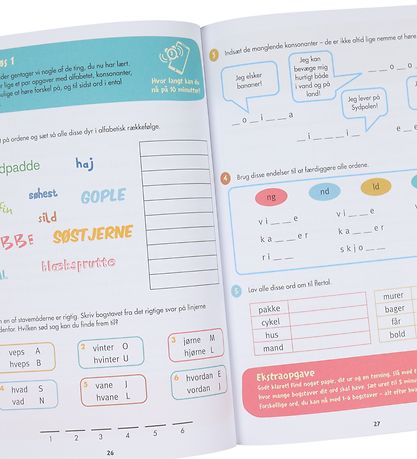 øs 1
der gentager vi nogle af de ting, du nu har lært.
er lige et par opgaver med alfabetet, konsonanter,
ulige at høre forskel på, og til sidst ord i ental
Hvor langt kan du
nå på 10 minutter?
t på ordene og sæt så alle disse dyr i alfabetisk rækkefølge.
dpadde
haj
søhest
GOPLE
sild
BBE
SØSTJERNE
blæksprutte
n en af stavemåderne er rigtig. Skriv bogstavet fra det rigtige svar på linjerne
denfor. Hvilken sød sag kan du finde frem til?
veps A
hveps B
2 vinter O
hvinter U
3 jørne M
hjørne L
4 hvad S
vad N
5 vane J
hvane L
6 hvordan E
vordan I
1 2 3 4 5 6
26
3 Indsæt de manglende konsonanter – de er ikke altid lige nemme at høre
Jeg elsker
bananer!
Jeg kan
bevæge mig
hurtigt både
i vand og på
land!
Jeg lever på
Sydpolen!
_ o _ i _ a
_ i _ _ _ i _
_ _ o
4 Brug disse endelser til at færdiggøre alle ordene.
ng nd ld
vi _ _ e vi _ _ e
ka _ _ er ka _ _ e
ri _ _ skjo _ _
5 Lav alle disse ord om til flertal.
pakke
cykel
hus
mand
murer
bager
får
bold
Ekstraopgave
Godt klaret! Find noget papir, dit ur og en terning. Slå med t
hvor mange bogstaver dit ord skal have. Sæt uret til 5 minut
forskellige ord, du kan nå med 1-6 bogstaver – alt efter hva
27